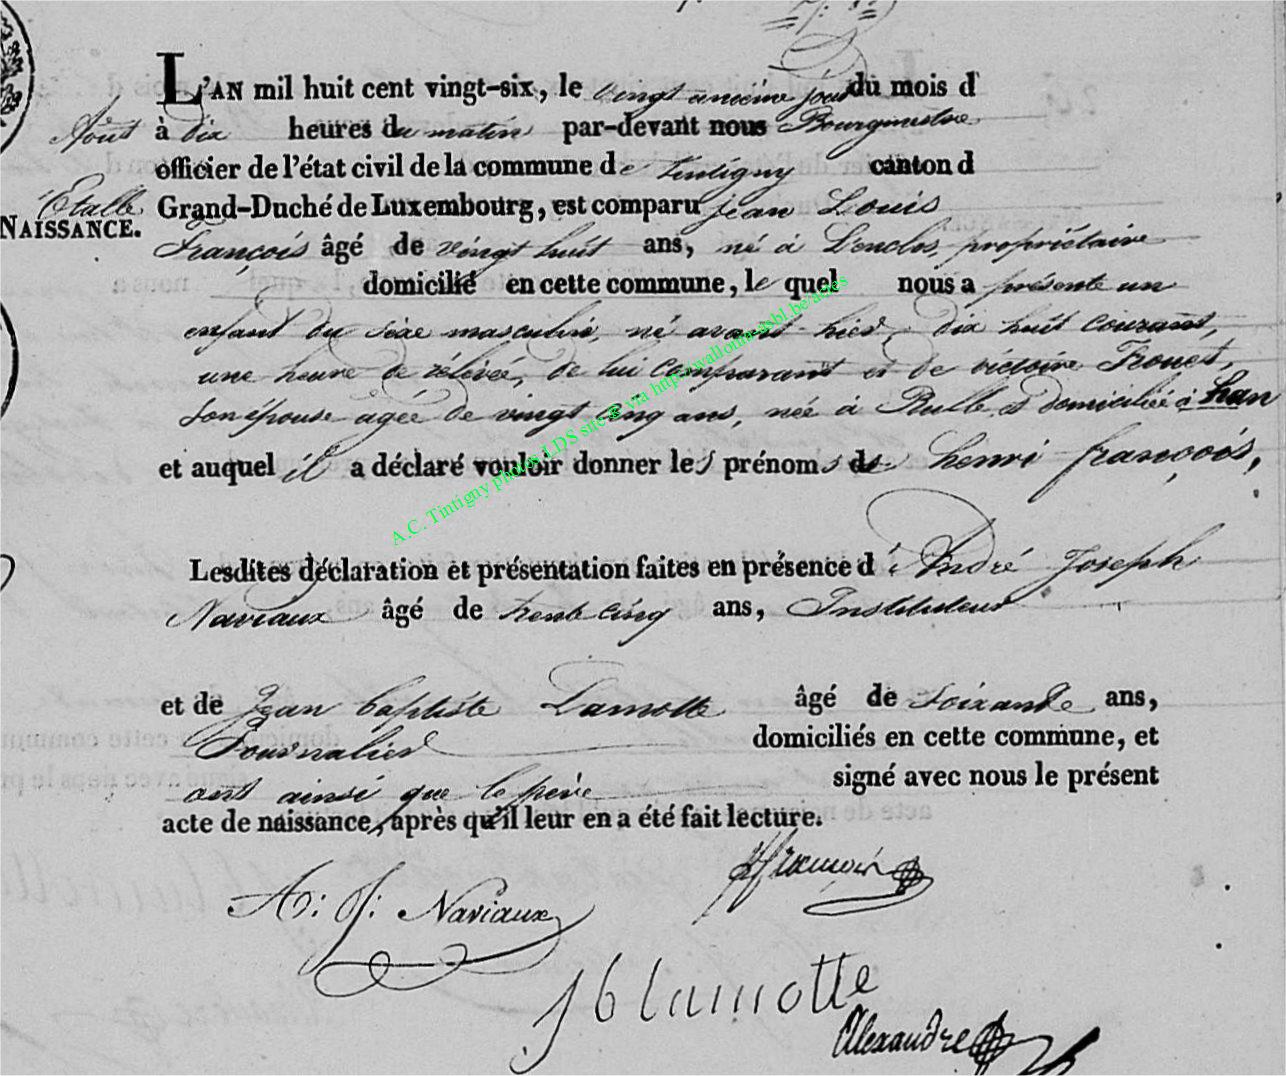 L'AN mil huit cent vingt-six, le vingt unième jour du mois d'
Août à dix heures du matin par-devant nous Bourgmestre
officier de l'état civil de la commune de Tintigny canton d
Etalle Grand-Duché de Luxembourg, est comparu Jean Louis
NAISSANCE.
François âgé de vingt huit ans, né à Lenclos, propriétaire
domicilié en cette commune, le quel nous a présenté un
enfant du sexe masculin, né avant hier, dix huit courant,
une heure de relevée, de lui comparant et de victoire Frouet,
son épouse agée de vingt cinq ans, née à Rulle et domiciliée à han
et auquel il a déclaré vouloir donner les prénoms de henri françois,
Lesdites déclaration et présentation faites en présence d'André Joseph
Naviaux âgé de trente cinq ans, Instituteur
et de Jean baptiste Lamotte âgé de soixante ans,
Journalier domiciliés en cette commune, et
ont ainsi que le père signé avec nous le présent
acte de naissance, après qu'il leur en a été fait lecture.
françois
A: J: Naviaux
J b lamotte
Alexandre
A.C. Tintigny photos LDS site @ via http://wallonia-asbl.be/actes